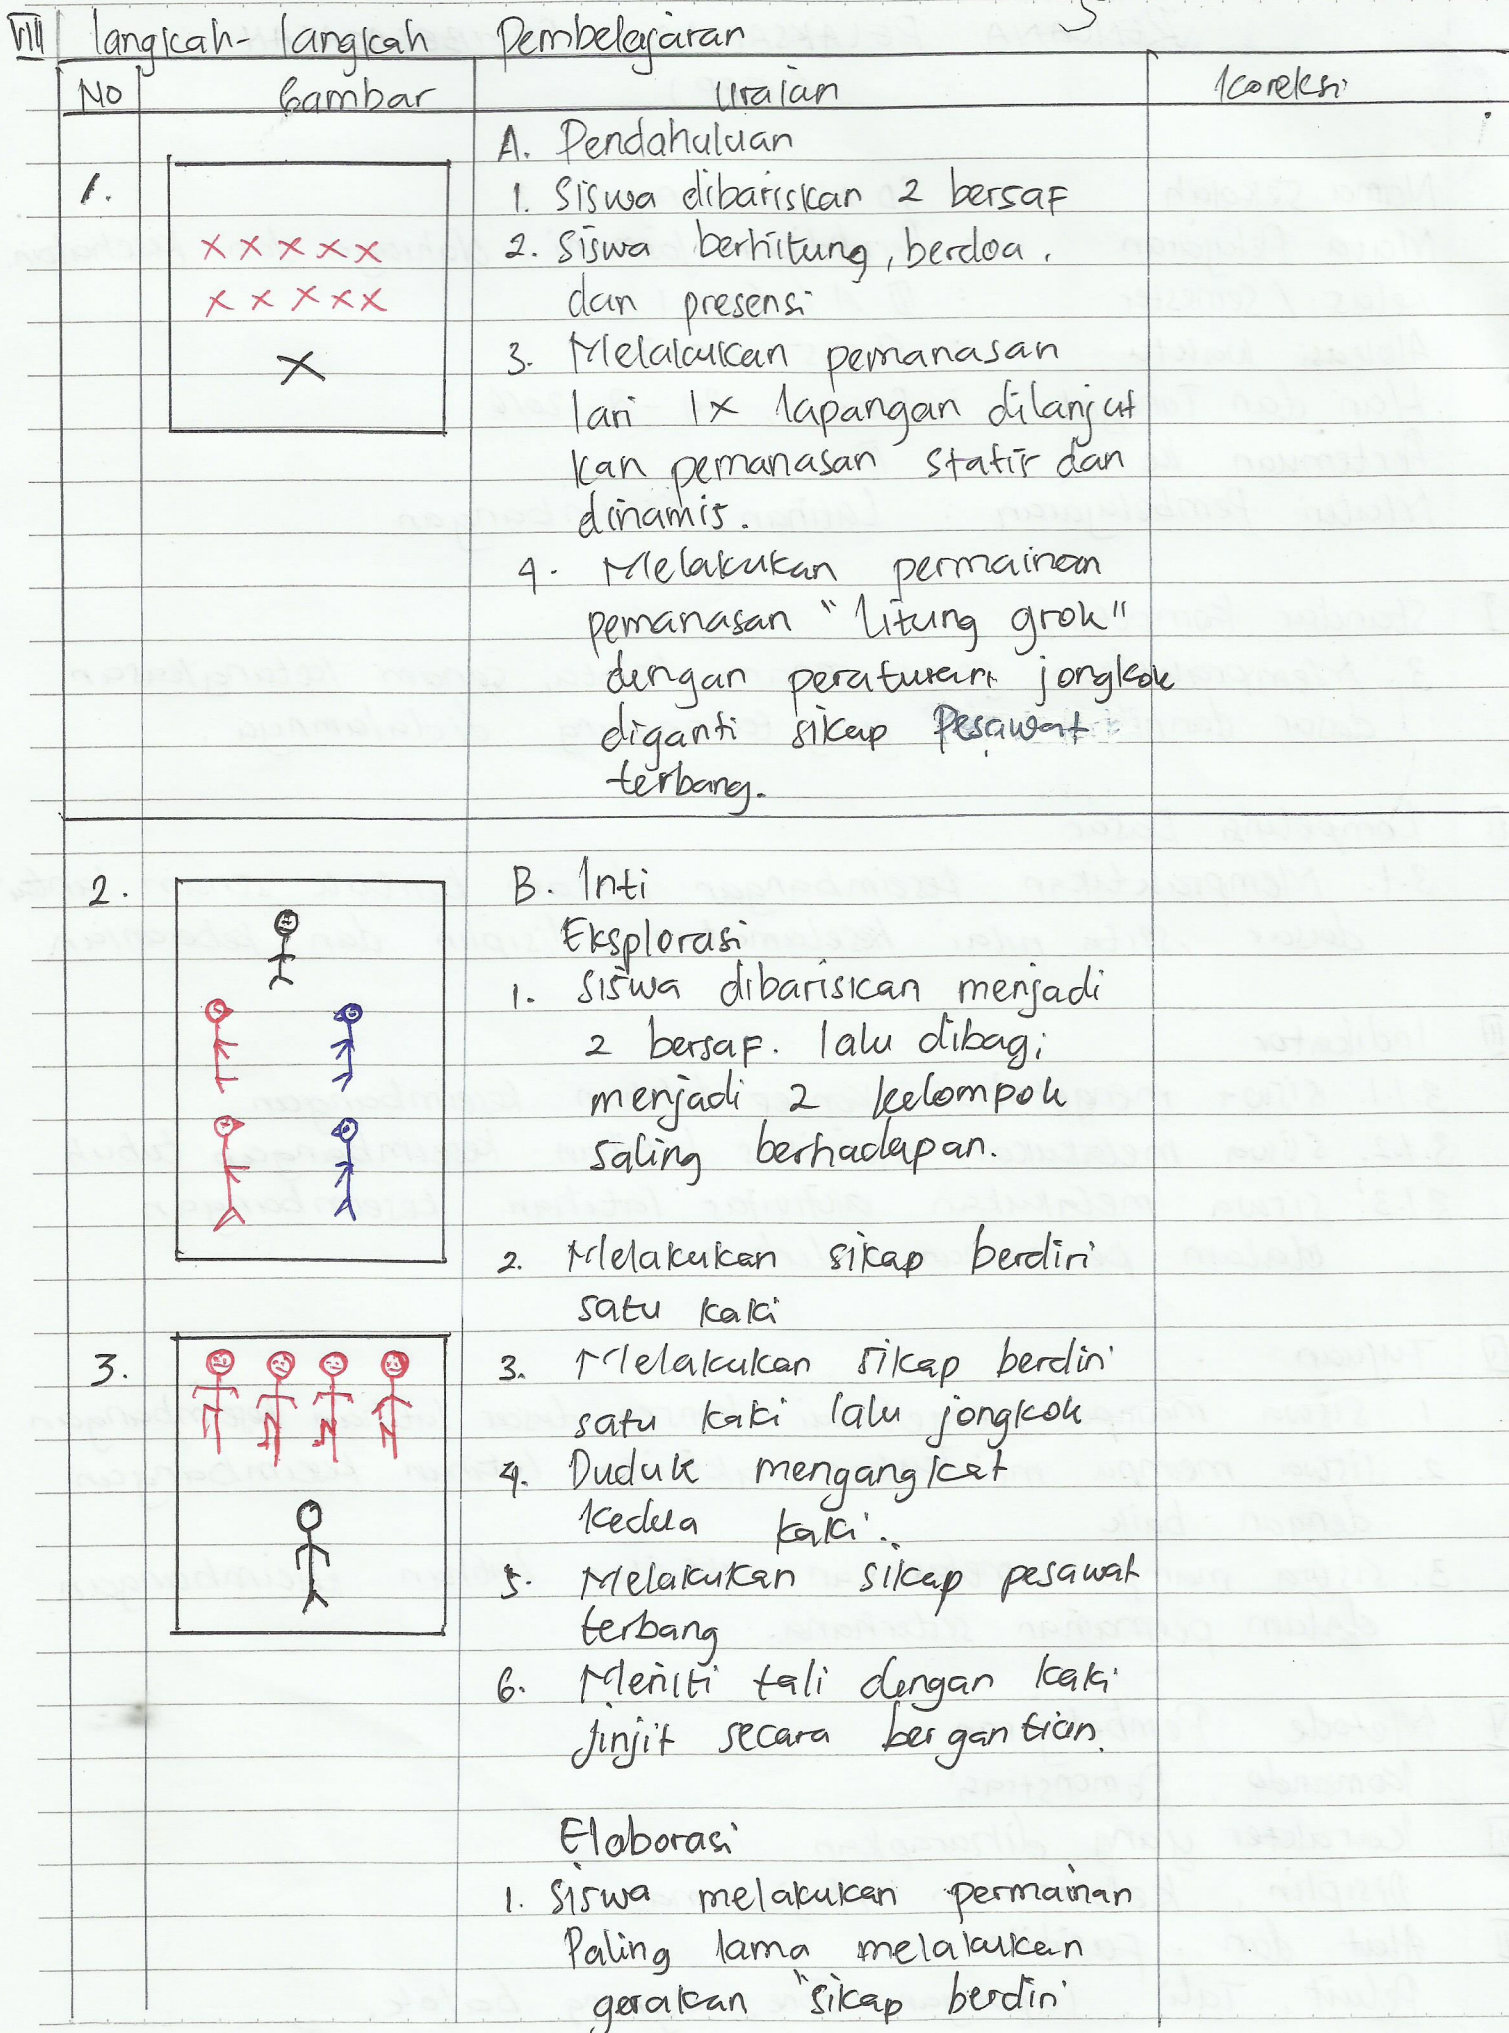 VIII langkah-langkah Pembelajaran
No Gambar Uraian Koreksi
A. Pendahuluan
1. 1. Siswa dibariskan 2 bersaf
2. Siswa berhitung, berdoa,
dan presensi
3. Melakukan pemanasan
lari 1x lapangan dilanjut
kan pemanasan statis dan
dinamis.
4. Melakukan permainan
pemanasan "litung grok"
dengan peraturan jongkok
diganti sikap Pesawat
terbang.
2. B. Inti
Eksplorasi
1. Siswa dibariskan menjadi
2 bersaf. lalu dibagi
menjadi 2 kelompok
saling berhadapan.
2. Melakukan sikap berdiri
satu kaki
3. 3. Melakukan sikap berdiri
satu kaki lalu jongkok
4. Duduk mengangkat
kedua kaki.
5. Melakukan sikap pesawat
terbang
6. Meniti tali dengan kaki
jinjit secara bergantian.
Elaborasi
1. Siswa melakukan permainan
Paling lama melakukan
gerakan "sikap berdiri